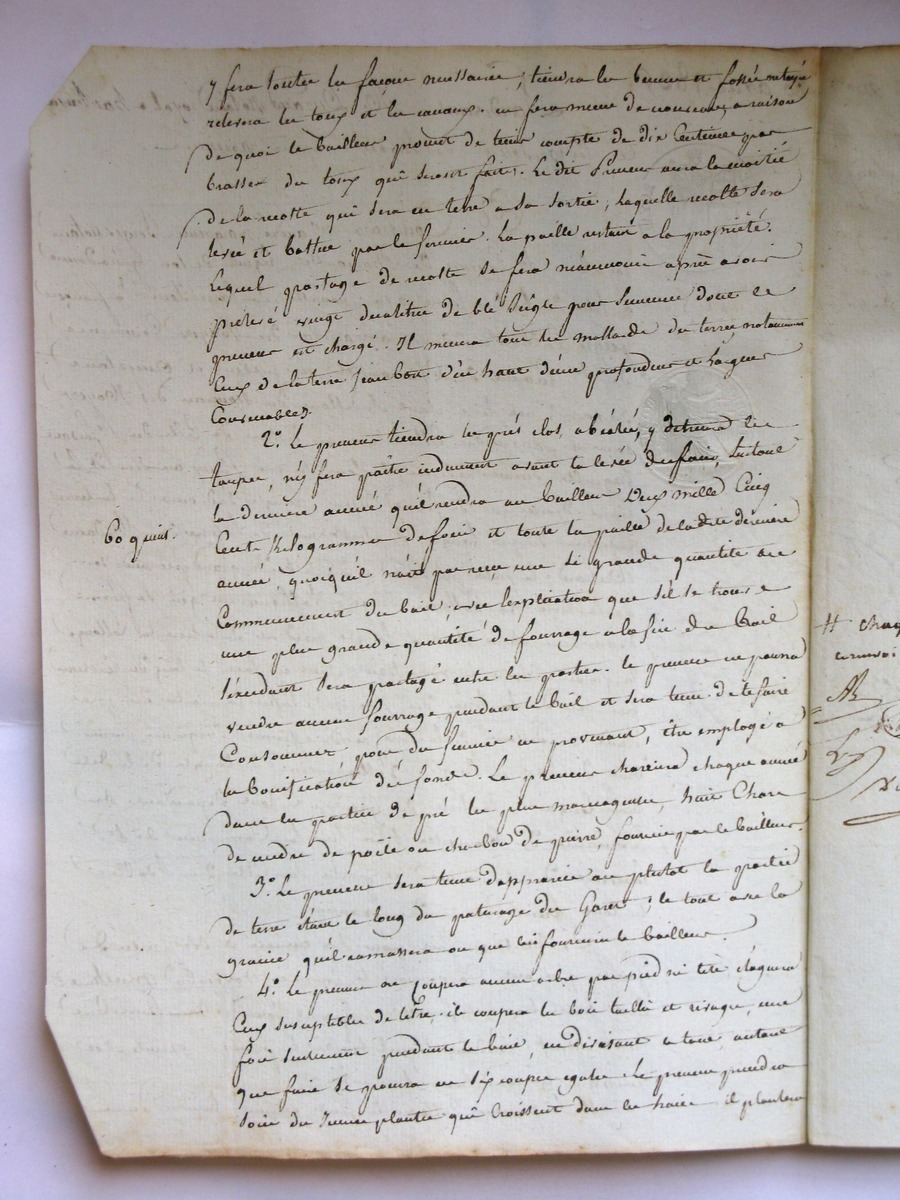 y fera toutes les façons necessaires; tiendra les bennes et fossés
relevera les toux et les canaux. en fera meme de nouveaux, a raison
de quoi le bailleur promet de tenir compte de dix Centimes par
brasses du toux qui seront faits. Le dit Preneur aura la moitié
de la recolte qui sera en terre a sa sortie, laquelle recolte sera
levée et battue par le fermier. La paille restant a la propriété.
Lequel partage de recolte se fera néanmoins après avoir
prelevé vingt decalitres de blé Seigle pour Semence dont le
preneur est chargé. Il menera tous les des terres notamment
Ceux de la terre d'en haut d'une profondeur et Largeur
Convenables.
2.° Le preneur tiendra les prés clos, abéalés, y detruira les
taupes, n'y fera paître indument avant la levée des foins, Surtout
la derniere année qu'il rendra au bailleur Deux mille Cinq
60 quint.
Cents Kilogrammes de foin et toute la paille de la dite derniere
année, quoiqu'il n'ait pas reçu une si grande quantité au
Commencement du bail, avec l'explication que s'il se trouve
une plus grande quantité de fourrage à la fin du Bail
l'éxcedant sera partagé entre les parties. le preneur ne pourra
vendre aucun fourrage pendant le bail et sera tenu de le faire
Consommer pour du fumier en provenant, être employé à
la bonification du fonds. Le preneur charriera chaque année
dans les parties de pré les plus marecageuses, huit Chars
de cendre de poële ou charbon de pierre, fournie par le bailleur.
3.° Le preneur sera tenu d'apprarier au plutot la partie
de terre étant le long du paturage du Garet; le tout avec la
graine qu'il ramassera ou que lui fournira le bailleur.
4.° Le preneur ne Coupera aucun arbre par pied ni tête élaguera
Ceux susceptibles de l'être. il coupera les bois taillis et rivage, une
fois seulement pendant le bail, en divisant le tout, autant
que faire se pourra en six coupes egales. Le preneur prendra
soin des Jeunes plantes qui Croissent dans les haies, il plantera
# chaq